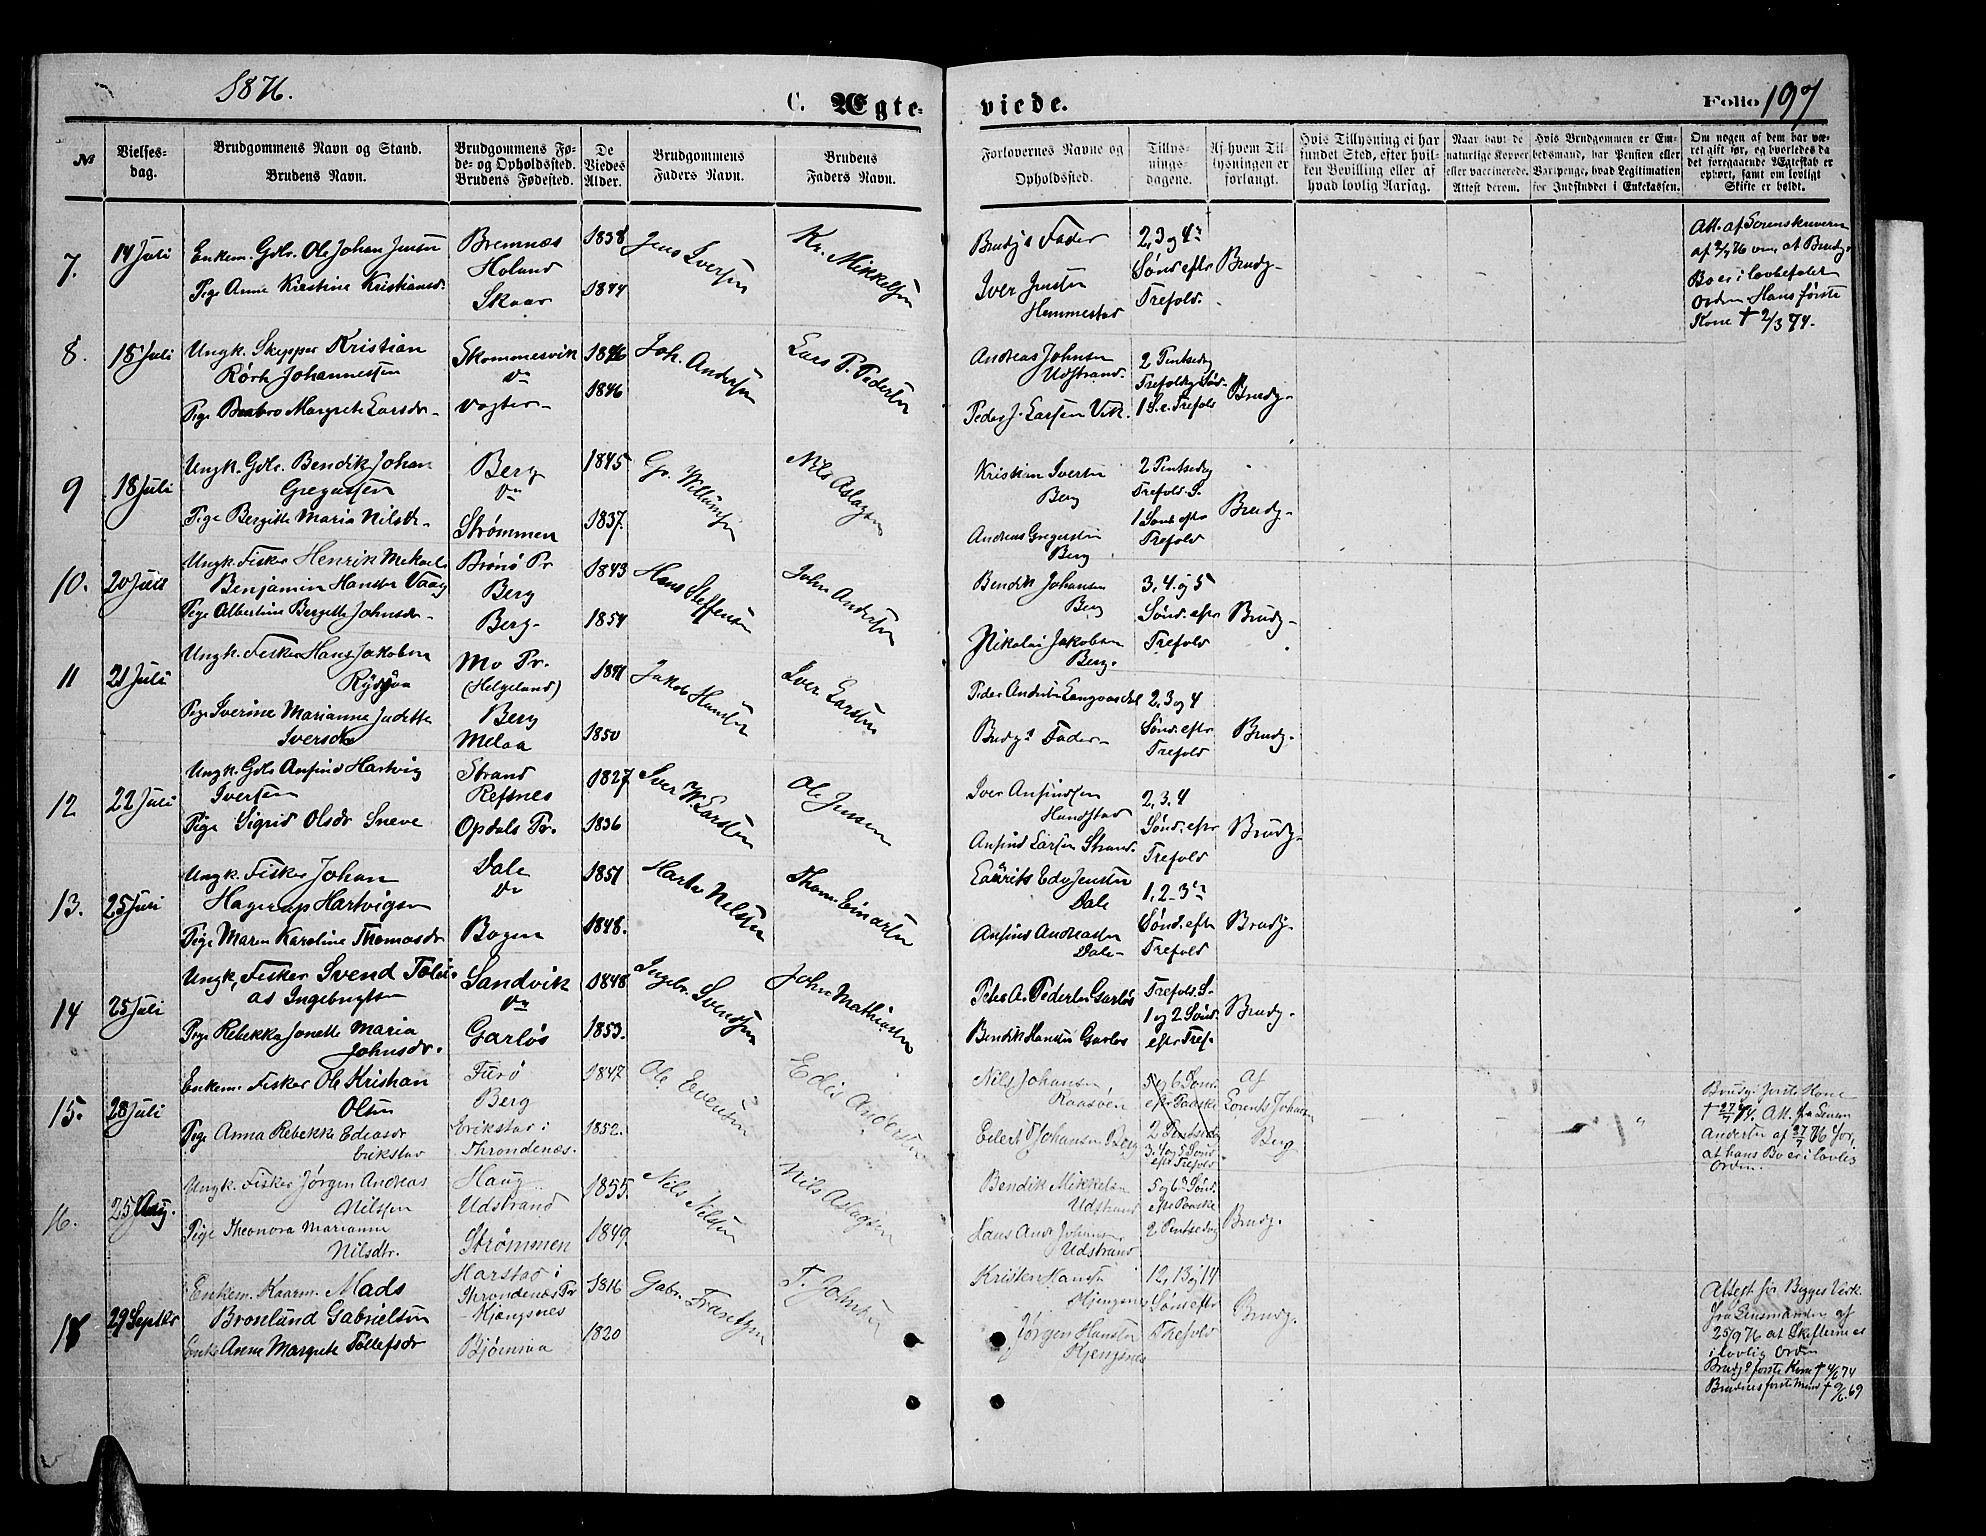 1876.
C. Ægte-
viede.
Folio 197
№
Vielses-
dag.
Brudgommens Navn og Stand.
Brudens Navn.
Brudgommens Fø-
de- og Opholdssted.
Brudens Fødested.
De
Viedes
Alder.
Brudgommens
Faders Navn.
Brudens
Faders Navn.
Forlovernes Navne og
Opholdssted.
Tillys-
nings-
dagene.
Af hvem Til-
lysningen er
forlangt.
Hvis Tillysning ei har
fundet Sted, efter hvil-
ken Bevilling eller af
hvad lovlig Aarsag.
Naar havt de
naturlige Kopper
eller vaccinerede.
Attest derom.
Hvis Brudgommen er Em-
bedsmand, har Pension eller
Vartpenge, hvad Legitimation
for Indskuddet i Enkekassen.
Om nogen af dem har væ-
ret gift før, og hvorledes da
det foregaaende Ægteskab er
ophørt, samt om lovligt
Skifte er holdt.
7. 14 Juli
Enkem. Gdbr. Ole Johan Jensen
Pige Anne Kirstine Kristiansd.
Bremnæs
Holand
Skaar
1838
1844
Jens Iversen
Kr. Mikkelsen
Brudgs Fader
Iver Jensen
Hemmestad
2, 3 og 4de
Sønd. eftr
Trefold.
Brudg.
Att. af Sorenskriveren
af 3/7 76 om, at Brudg.
Bo er i lovbefalet
Orden Hans første
Kone † 2/3 74.
8. 15 Juli
Ungk. Skipper Kristian
Rørk Johannessen
Pige Barbro Margrete Larsdr.
Skommesvik
do
Vogter
1846
1846
Joh. Andersen
Lars P. Pedersen
Andreas Johnsen
Udstrand.
Peder J. Larsen Vik.
2 Pintsedag
Trefoldig. Sønd.
1 S. e. Trefold
Brudg.
9 18 Juli
Ungk. Gdbr. Bendik Johan
Gregersen
Pige Bergitte Maria Nilsdr.
Berg
do
Strømmen
1845
1837.
Gr. Willumsen
Nils Aslagsen
Kristian Iversen
Berg
Andreas Gregersen
Berg
2 Pintsedag
Trefold. S.
1 Sønd. eftr
Trefold
Brudg.
10. 20 Juli
Ungk. Fisker Henrik Mekael
Benjamin Hansen Vaag
Pige Albertine Bergitte Johnsdr.
Brønø Pr
Berg
Berg.
1843
1854
Hans Steffensen
John Andersen
Bendik Johansen
Berg
Nikolai Jakobsen
Berg.
3, 4. og 5
Sønd. eftr
Trefold
Brudg.
11 21 Juli
Ungk. Fisker Hans Jakobsen
Pige Iverine Marianne Judette
Iversdr
Mo Pr.
(Helgeland)
Berg
Melaa
1850
Jakob Hansen
Iver Larsen
Brudgs Fader
2, 3 og 4
Sønd. eftr
Trefold
Brudg.
12 22 Juli
Ungk. Gdbr Anfind Hartvig
Iversen
Pige Sigrid Olsdr Sneve
Strand
Refsnes
Opdals Pr.
1827
1836
Iver W. Larsen
Ole Jensen
Iver Anfindsen
Hundstad
Anfind Larsen Strand.
2, 3. 4
Sønd. eftr
Trefold
Brudg.
13. 25 Juli
Ungk. Fisker Johan
Hagerup Hartvigsen
Pige Maren Karoline Thomasdr
Dale
do
Bogen
1851
1848.
Hartv Nilsen
Thom. Einarsen
Laurits Edv Jensen
Dale
Anfind Andreassen
Dale
1, 2 - 3de
Sønd. eftr
Trefold
Brudg.
14 25 Juli
Ungk. Fisker Svend Tobi-
as Ingebrigtsen
Pige Rebekka Jonette Maria
Johnsdr.
Sandvik
do
Garløs
1848
1853.
Ingebr. Svendsen
John Mathiassen
Peter A. Pedersen Garløs
Bendik Hansen Garløs
Trefold. S.
1 og 2 Sønd.
eftr Tref.
Brudg.
15. 28 Juli
Enkem. Fisker Ole Kristian
Olsen
Pige Anna Rebekka Ediasdr
Erikstad
Furø
Berg
Erikstad i
Throndenæs.
1847
1852.
Ole Evensen
Edis Andersen
Nils Johansen,
Raasven
Eilert Johansen Berg
5 og 6 Sønd.
eftr Paaske
2 Pintsedag
3. 4 og 5 Sønd
eftr Trefold.
af
Lorents Johan
Berg
Brudg. første Kone
Andersen af 27/7 76 for,
at hans Bo er i lovlig
Orden.
16. 25 Aug.
Ungk. Fisker Jørgen Andreas
Nilssen
Pige Theonora Marianne
Nilsdtr.
Haug
Udstrand
Strømmen
1855.
1849.
Nils Nilsen
Nils Aslagsen
Bendik Mikkelsen
Udstrand
Hans Andr Johansen
Udstrand
5 og 6 Sønd.
eftr Paaske
2 Pintsedag
Brudg.
29 Septbr
Enkem. Kaarm. Mads
Broslund Gabrielsen
Enke Anne Margrete Tollefsdr
Harstad i
Throndenæs Pr
Kjengsnes
Bjørnraa
1816
1820
Gabr. Frantzen
T. Johnsen
Kristen Hansen
Kjengsnes
Jørgen Hansen
Kjengsnes
12, 13 og 14
Sønd. eftr
Trefold
Brudg.
Attest fra Bygges Virk.
fra Lensmanden af
25/9 76 at Skifterne er
i lovlig Orden
Brudgs første Kone † 4/6 74
Brudens første Mand † 9/6. 69